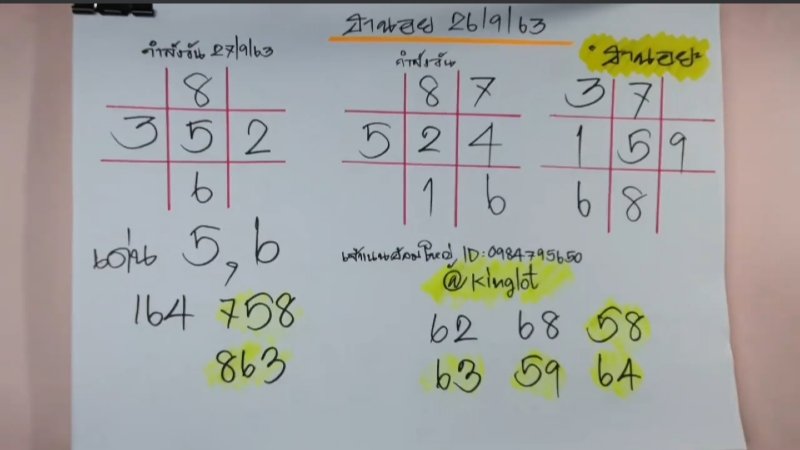 ฮานอย 26/9/63
คำสั่งวัน 27/9/63
8
3 5 2
6
เด่น 5,6
164 758
863
คำสั่งวัน
8 7
5 2 4
1 6
ฮานอย
3 7
1 5 9
6 8
ID:0984795650
@kinglot
62 68 58
63 59 64